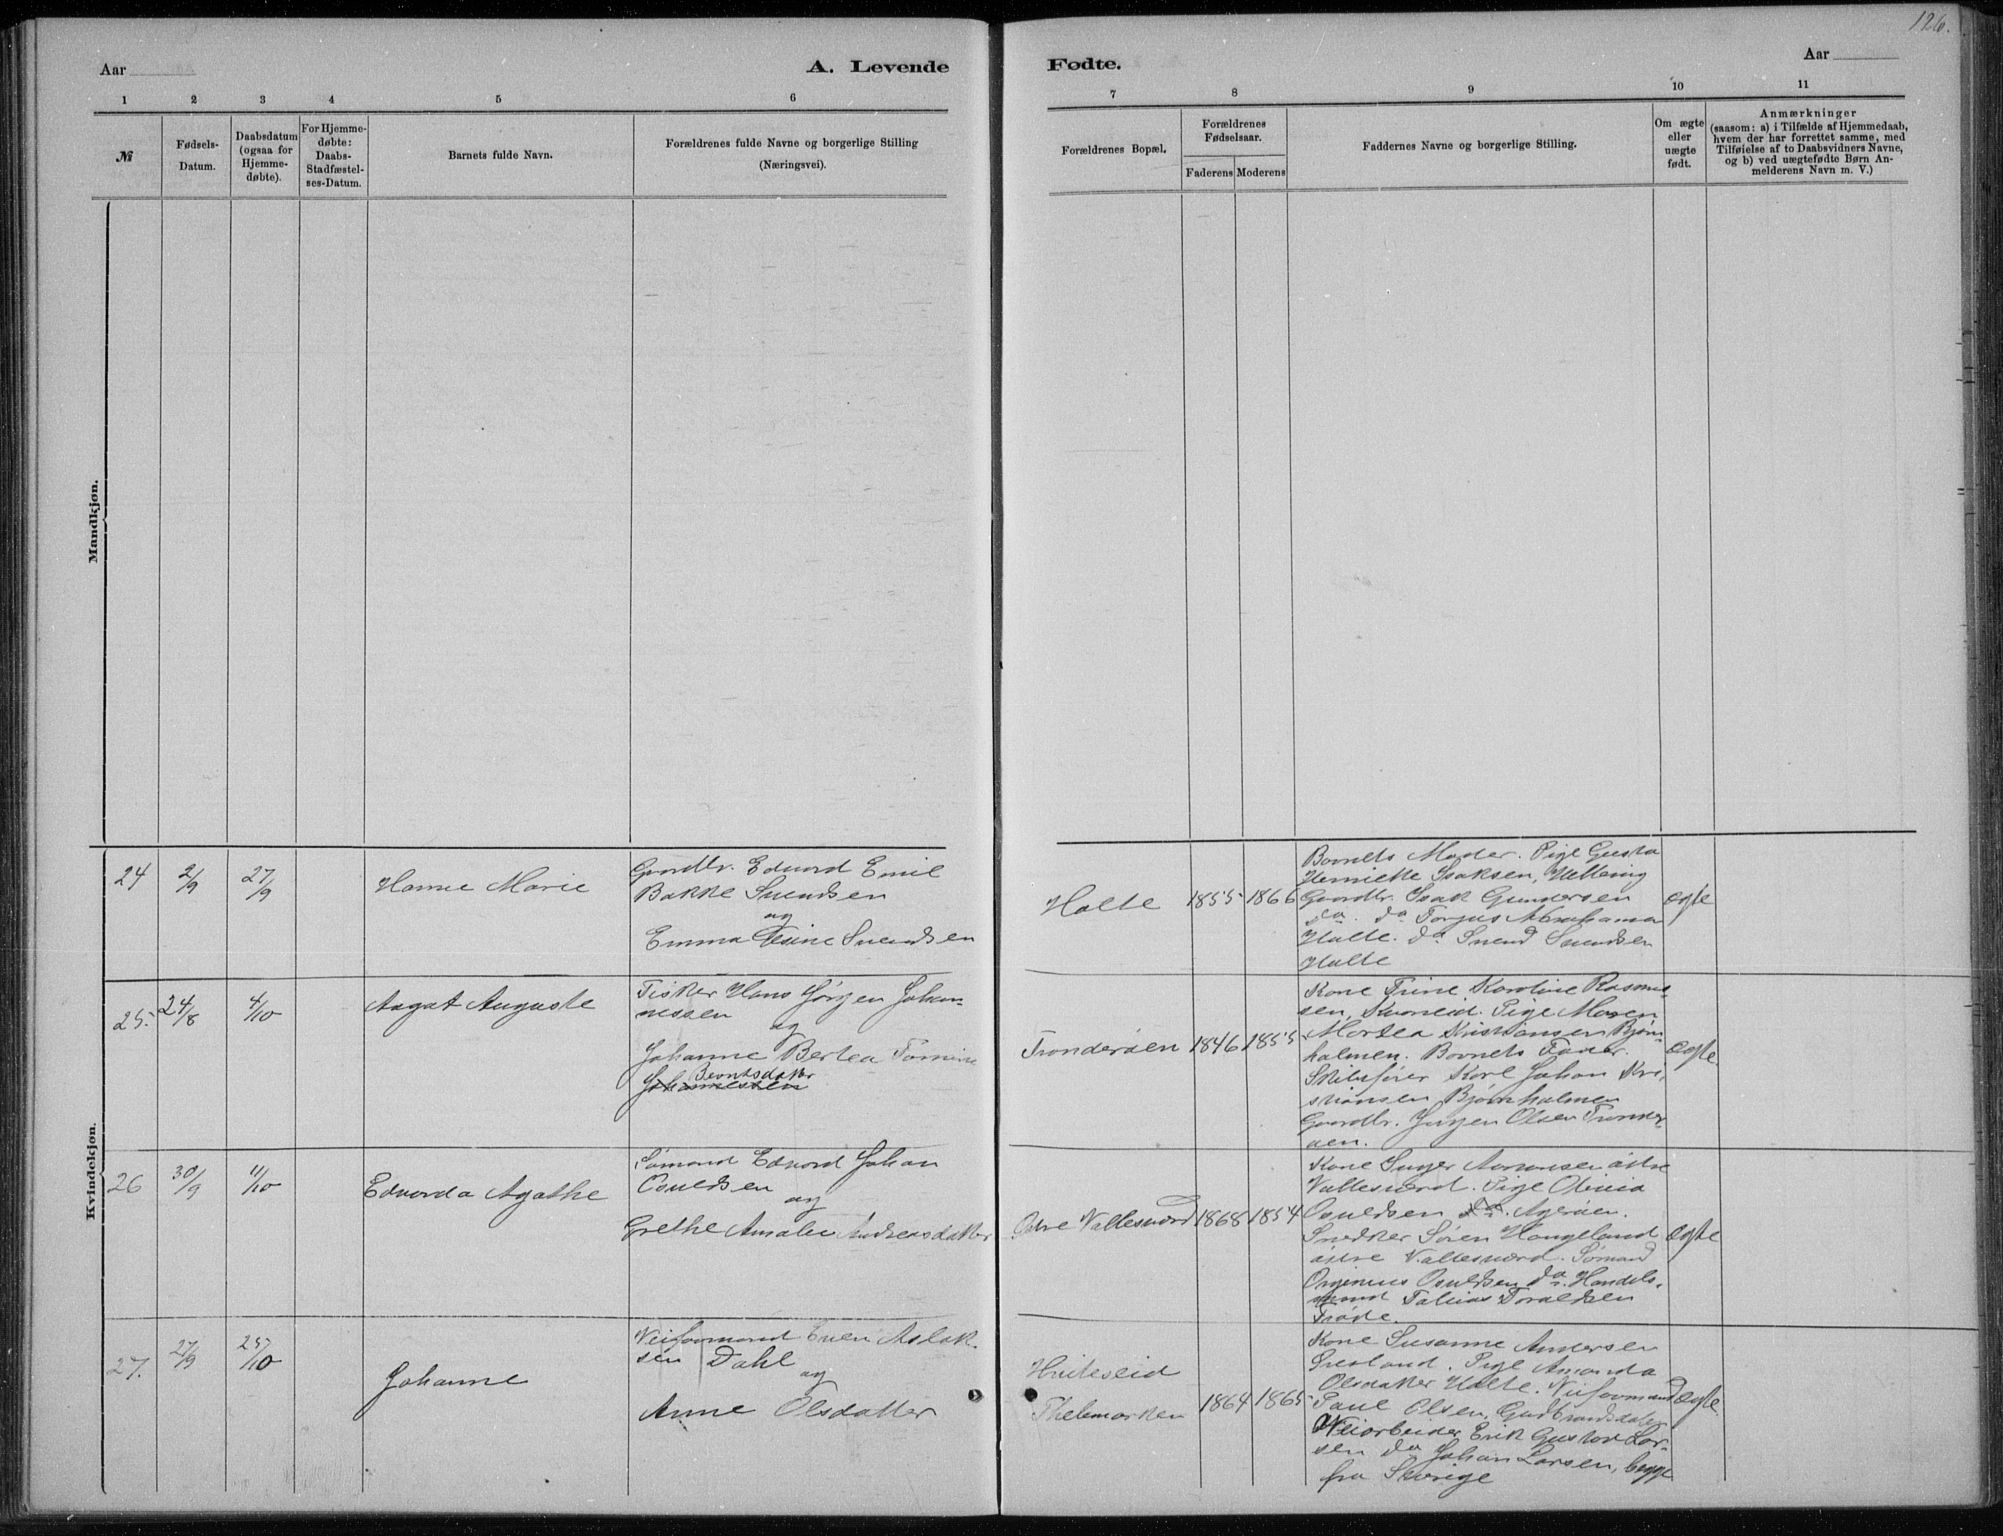 126.
Aar
A. Levende
Fødte.
Aar
1 2 3 4 5 6
7 8 9 10 11
№
Fødsels-
Datum.
Daabsdatum
(ogsaa for
Hjemme-
døbte).
For Hjemme-
døbte:
Daabs-
Stadfæstel-
ses-Datum.
Barnets fulde Navn.
Forældrenes fulde Navne og borgerlige Stilling
(Næringsvei).
Forældrenes Bopæl.
Forældrenes
Fødselsaar.
Faderens Moderens
Faddernes Navne og borgerlige Stilling.
Om ægte
eller
uægte
født.
Anmærkninger
(saasom: a) i Tilfælde af Hjemmedaab,
hvem der har forrettet samme, med
Tilføielse af to Daabsvidners Navne,
og b) ved uægtefødte Børn An-
melderens Navn m. V.)
Mandkjøn.
Kvindekjøn.
24
2/9
27/9
Hanne Marie
Gaardbr. Edvard Emil
Bakke Svendsen
og
Emma Tesine Svendsen
Holte
1855
1866
Barnets Moder. Pige Gusta
Henriette Isaksen,
Gaardbr. Isak Gundersen
do. do Torjus
Holte. do Svend Svendsen
Holte
ægte
25.
24/8
4/10
Aagot Auguste
Fisker Hans Jørgen Johan-
nessen
og
Johanne Bertea
Berntsdatter
Johannessen
Tronderøen
1846
1855
Kone Trine Karoline Rasmus-
sen, Pige Maren
Martea Kristiansen Bjørn-
holmen. Barnets Fader.
Skibsfører Karl Johan Kri-
stiansen Bjørnholmen
Gaardbr. Jørgen Olsen Tronder-
øen.
ægte
26
30/9
11/10
Edvarda Agathe
Sømand Edvard Johan
Osuldsen
og
Grethe Amalie Andreasdatter
Østre Vallesværd
1868
1854
Kone Inger Aanonsen østre
Vallesværd. Pige Olivia
Osuldsen do. Agerøen.
Snedker Søren Haugeland
østre Vallesværd. Sømand
Orgenius Osuldsen do. Handels-
mand Tobias Toraldsen
Trøde.
ægte
27.
27/9
25/10
Johanne
Veiformand Even Aslak-
sen Dahl
og
Anne Olsdatter
Hviteseid
Thelemarken
1864
1865
Kone Susanne Andersen
Pige Amanda
Olsdatter Holte. Veiformand
Paul Olsen, Gudbrandsdalen
Veiarbeider Erik Gustav Lar-
sen do Johan Larsen, begge
fra Sverige
ægte.